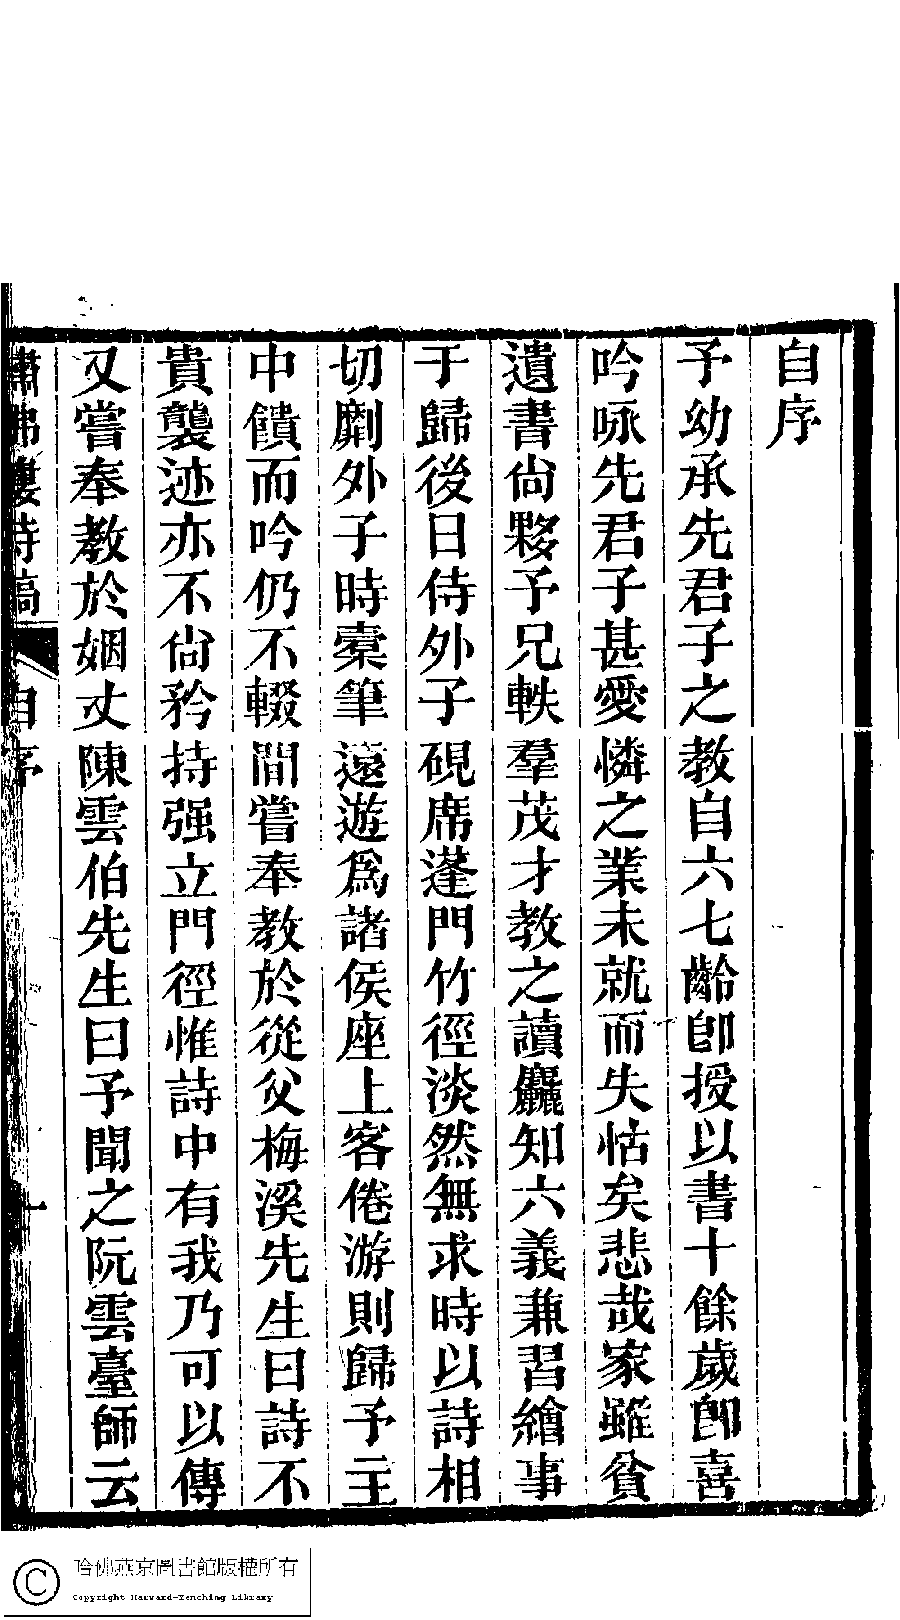 自序
予幼承先君子之教自六七齡卽授以書十餘歲卽喜
吟咏先君子甚愛憐之業未就而失怙矣悲哉家雖貧
遺書尙夥予兄軼羣茂才教之讀麤知六義兼習繪事
于歸後日侍外子硯席蓬門竹徑淡然無求時以詩相
切劘外子時橐筆遠遊爲諸侯座上客倦游則歸予主
中饋而吟仍不輟間嘗奉教於從父梅溪先生曰詩不
貴襲迹亦不尙矜持强立門徑惟詩中有我乃可以傳
又嘗奉教於姻丈陳雲伯先生曰予聞之阮雲臺師云
詩稿 自序 一
哈佛燕京圖書館版權所有
Copyright Harvard-Yenching Library